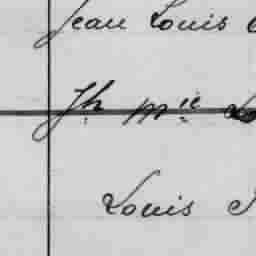 Jean Louis
Jh Mie
Louis